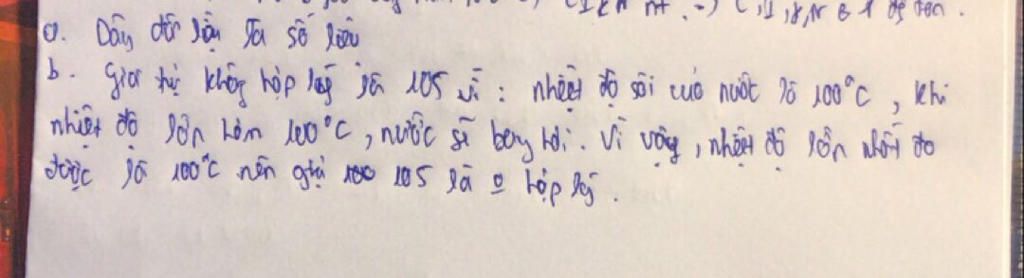 a. Dãy dữ liệu là số liệu
b. Giá trị không hợp lý là 105 vì : nhiệt độ sôi của nước là 100°C , khi
nhiệt độ lớn hơn 100°C , nước sẽ bay hơi. Vì vậy , nhiệt độ lớn nhất đo
được là 100°C nên giá 105 là o hợp lý .